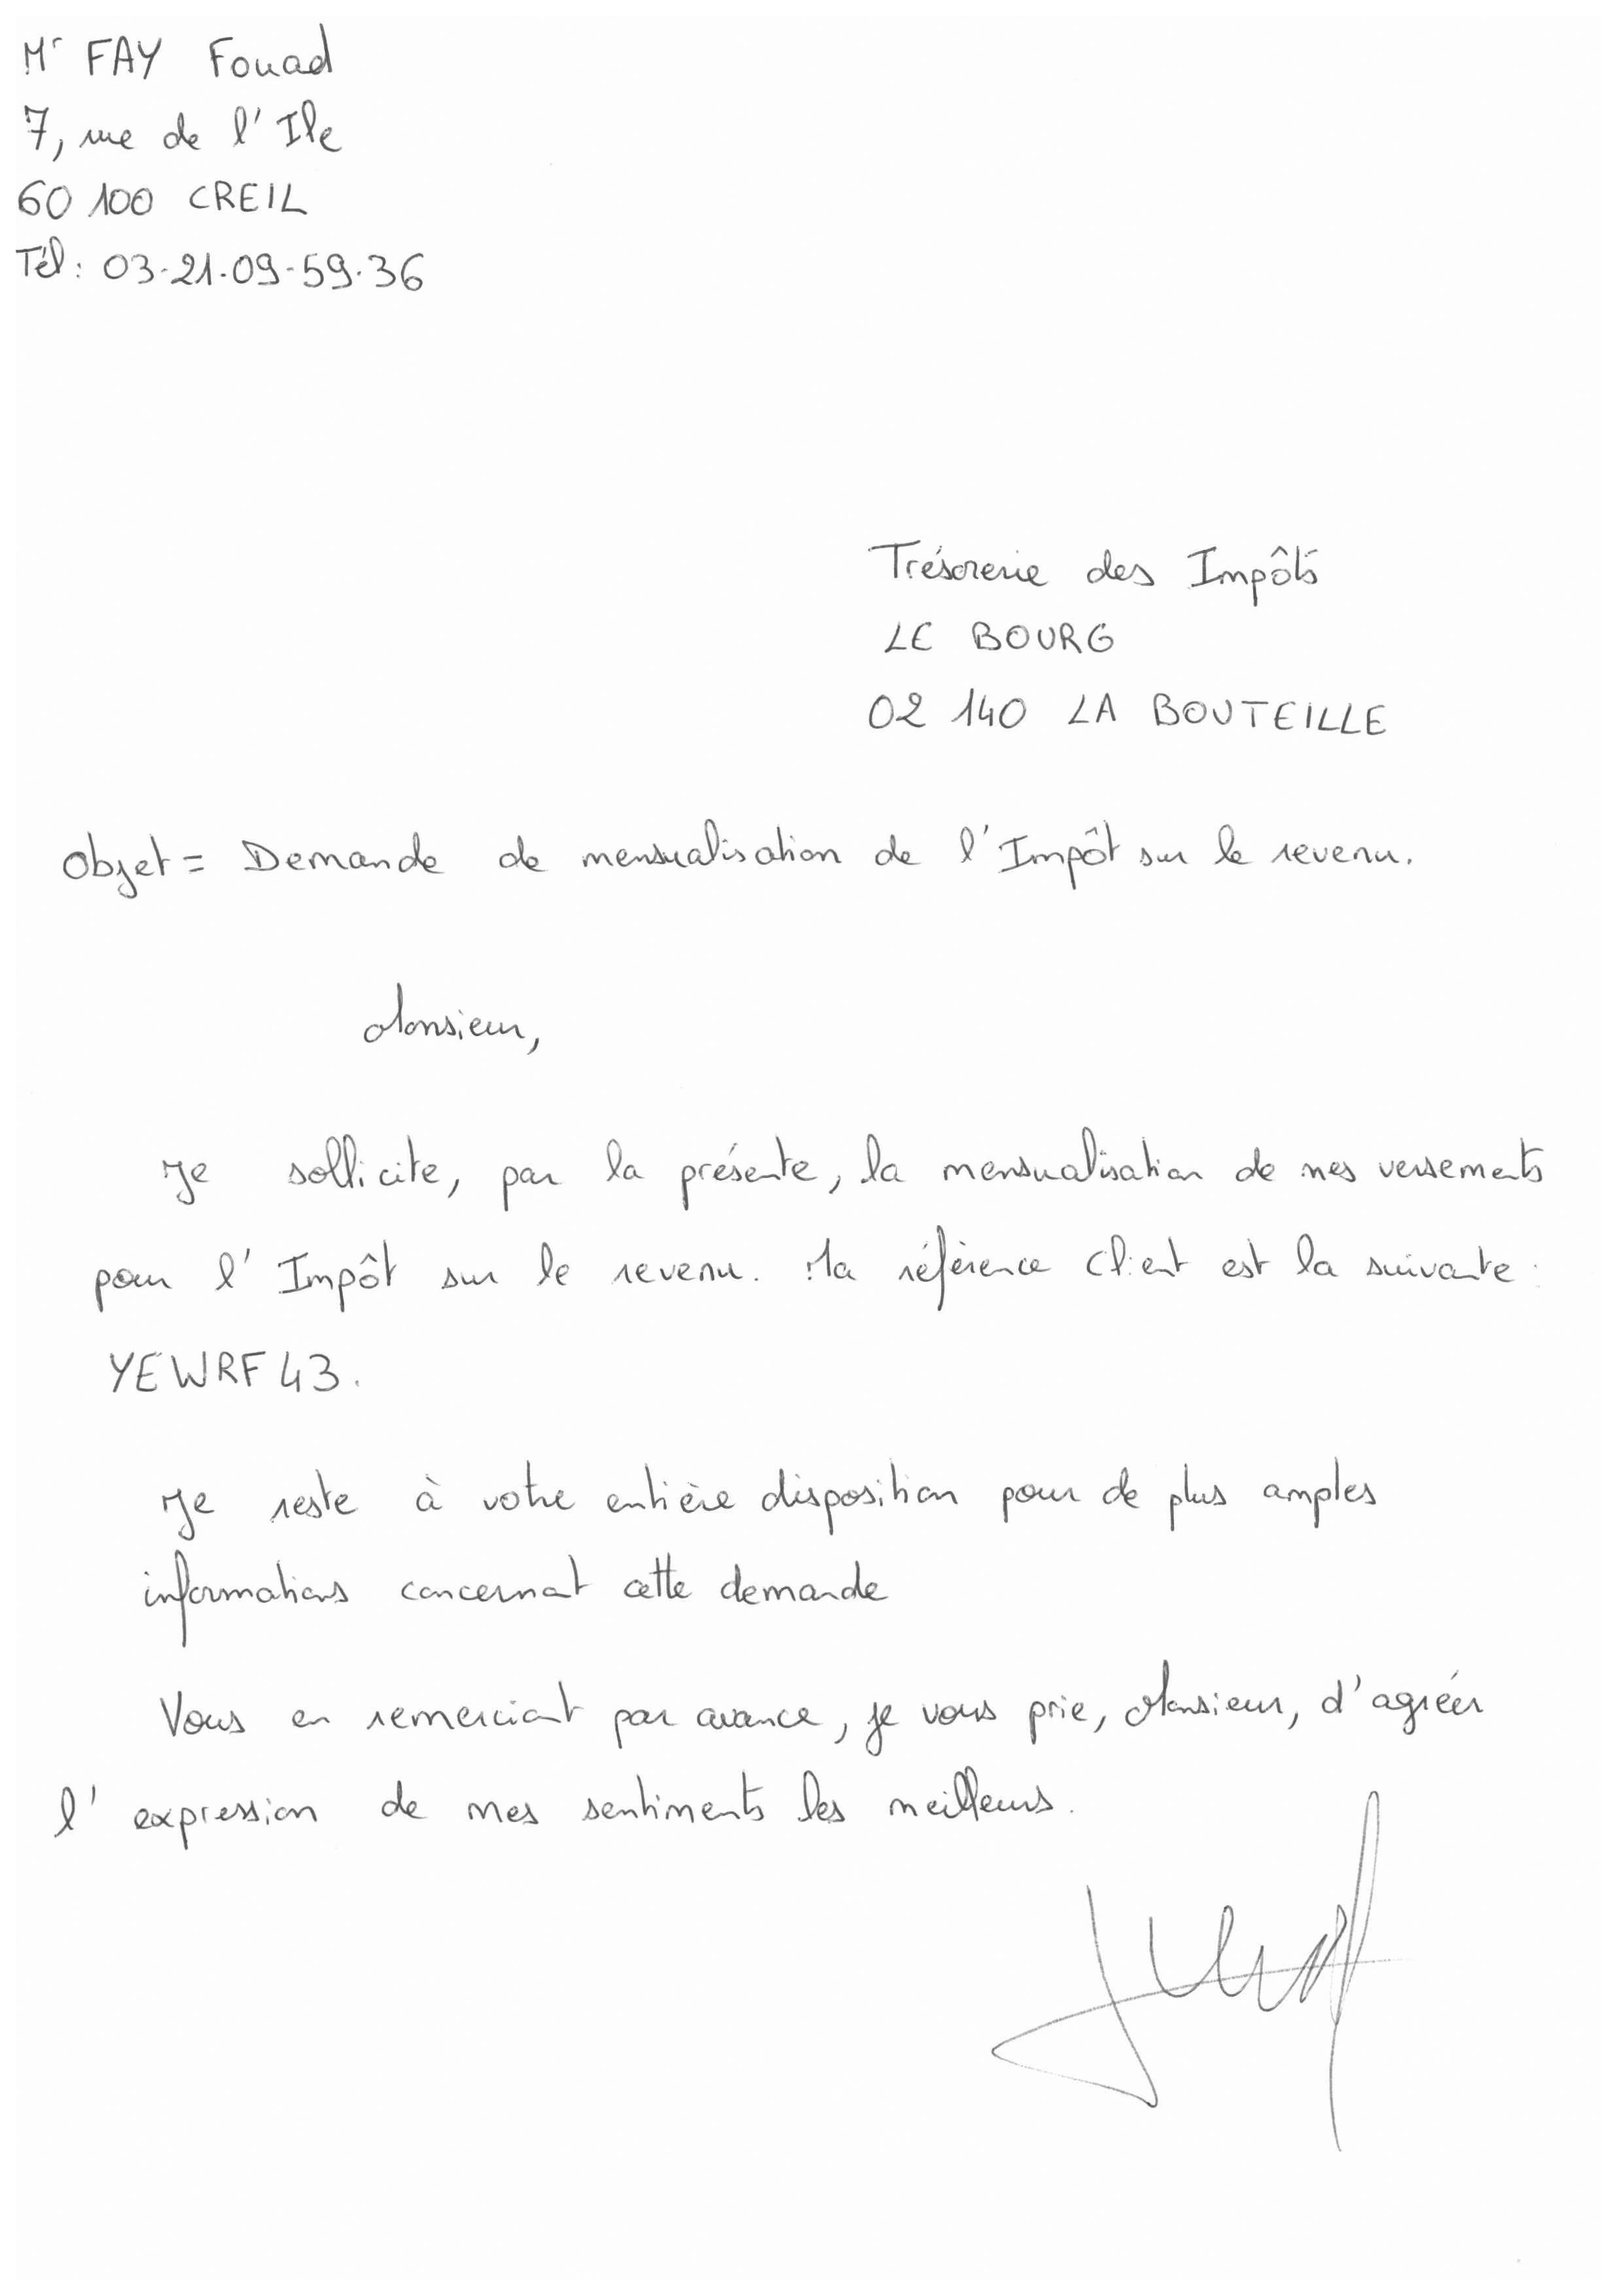 Mr FAY Fouad
7, rue de l'Ile
60 100 CREIL
Tél : 03-21-09-59-36
Trésorerie des Impôts
LE BOURG
02 140 LA BOUTEILLE
Objet = Demande de mensualisation de l'Impôt sur le revenu.
Monsieur,
Je sollicite, par la présente, la mensualisation de mes versements
pour l'Impôt sur le revenu. Ma référence client est la suivante :
YEWRF43.
Je reste à votre entière disposition pour de plus amples
informations concernant cette demande
Vous en remerciant par avance, je vous prie, Monsieur, d'agréer
l'expression de mes sentiments les meilleurs.